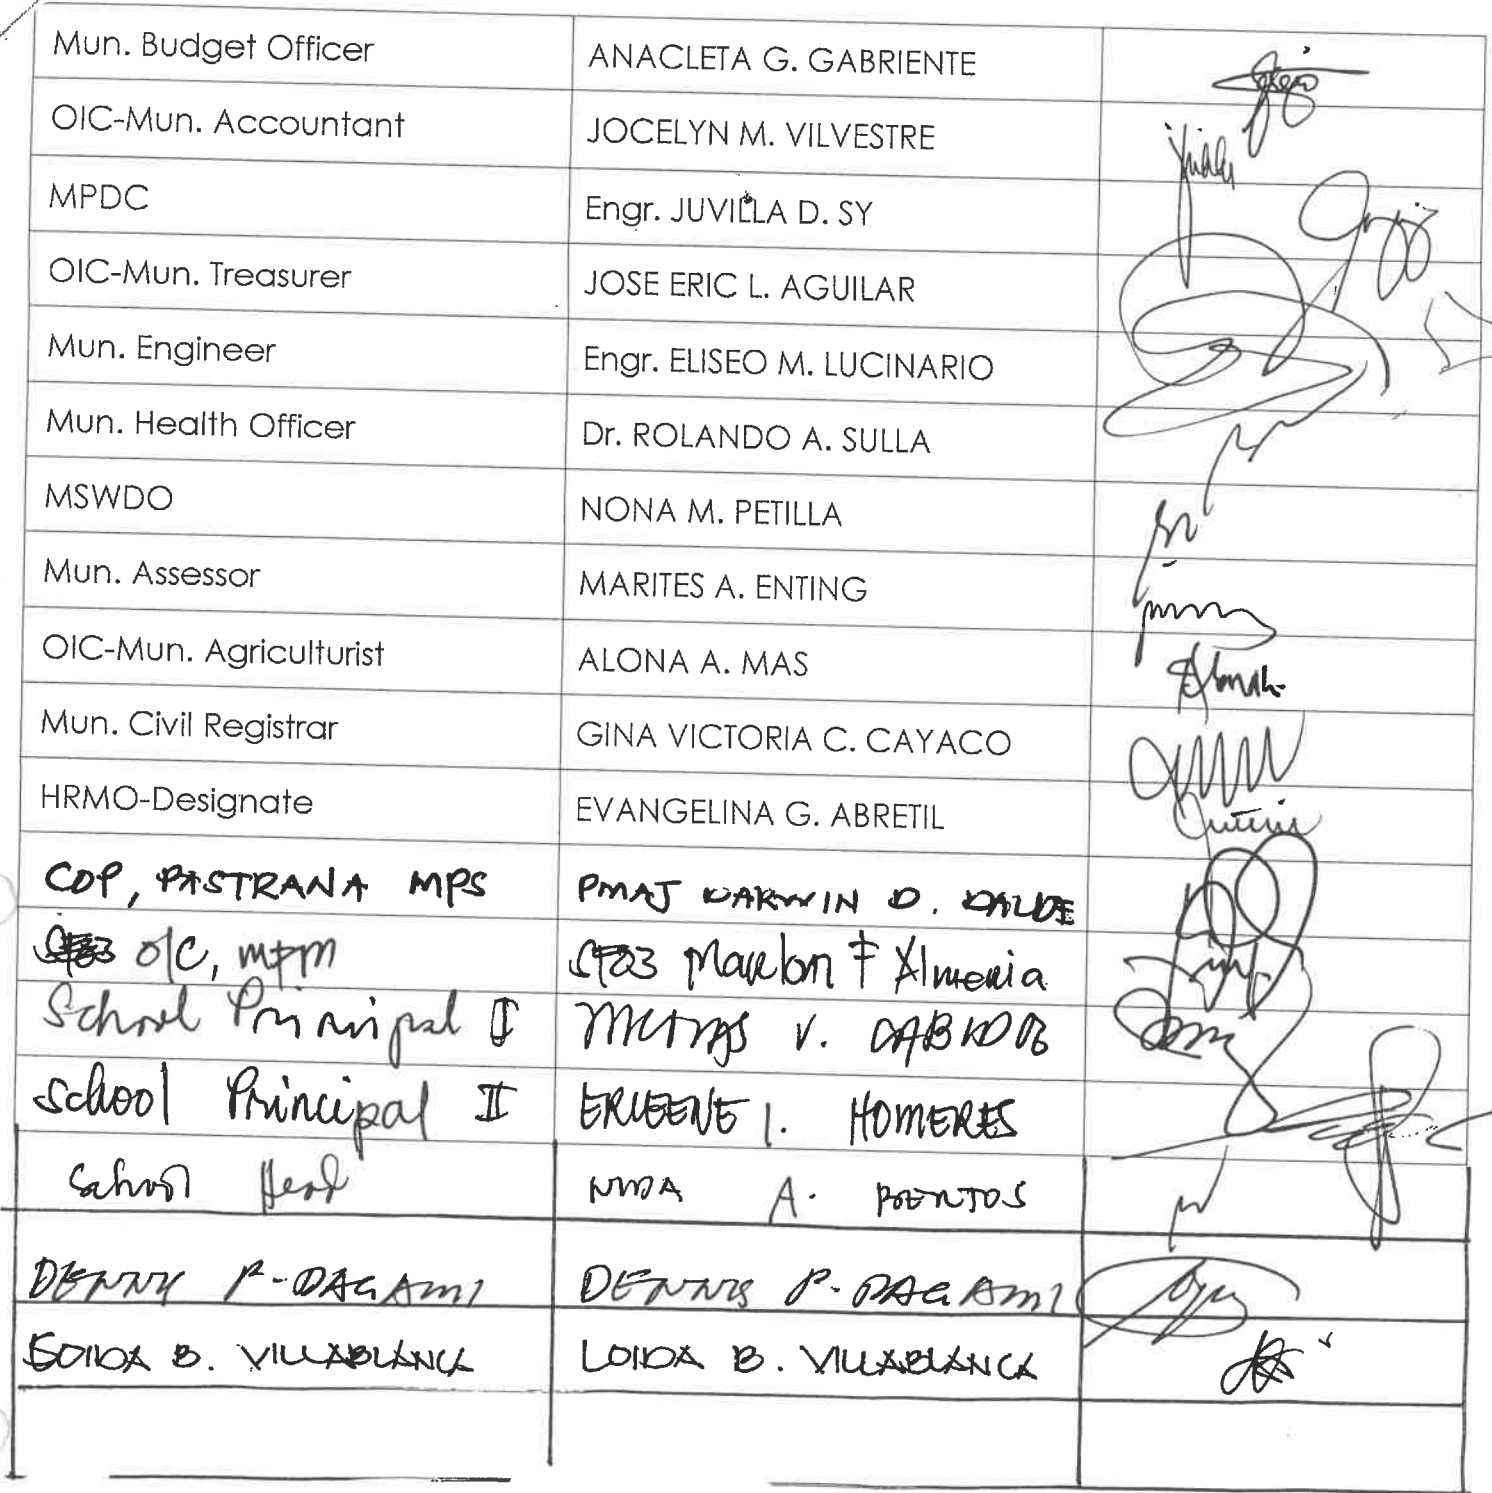 Mun. Budget Officer ANACLETA G. GABRIENTE
OIC-Mun. Accountant JOCELYN M. VILVESTRE
MPDC Engr. JUVILLA D. SY
OIC-Mun. Treasurer JOSE ERIC L. AGUILAR
Mun. Engineer Engr. ELISEO M. LUCINARIO
Mun. Health Officer Dr. ROLANDO A. SULLA
MSWDO NONA M. PETILLA
Mun. Assessor MARITES A. ENTING
OIC-Mun. Agriculturist ALONA A. MAS
Mun. Civil Registrar GINA VICTORIA C. CAYACO
HRMO-Designate EVANGELINA G. ABRETIL
COP, PASTRANA MPS PMAJ DARWIN D. DALDE
SFO3 Marlon F Almeria
School Principal I V.
School Principal II I. HOMERES
School Head A.
DENNIS P. DAGAMI DENNIS P. DAGAMI
LOIDA B. VILLABLANCA LOIDA B. VILLABLANCA